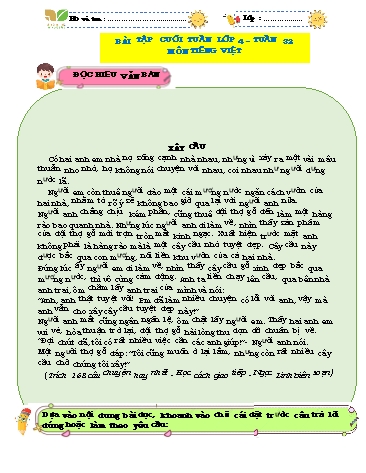 Họ và tên : ................................
Lớp : ................
BÀI TẬP CUỐI TUẦN LỚP 4 – TUẦN 32
MÔN TIẾNG VIỆT
ĐỌC HIỂU VĂN BẢN
XÂY CẦU
Có hai anh em nhà nọ sống cạnh nhà nhau, nhưng vì xảy ra một vài mâu
thuẫn nho nhỏ, họ không nói chuyện với nhau, coi nhau như người dưng
nước lã.
Người em còn thuê người đào một cái mương nước ngăn cách vườn của
hai nhà, nhằm tỏ rõ ý sẽ không bao giờ qua lại với người anh nữa.
Người anh chẳng chịu kém phần, cũng thuê đội thợ gỗ đến làm một hàng
rào bao quanh nhà. Nhưng lúc người anh đi làm về, nhìn thấy sản phẩm
của đội thợ gỗ mới trợn tròn mắt kinh ngạc. Xuất hiện trước mắt anh
không phải là hàng rào mà là một cây cầu nhỏ tuyệt đẹp. Cây cầu này
được bắc qua con mương, nối liền khu vườn của cả hai nhà.
Đúng lúc ấy người em đi làm về, nhìn thấy cây cầu gỗ xinh đẹp bắc qua
mương nước thì vô cùng cảm động. Anh ta liền chạy lên cầu, qua bên nhà
anh trai, ôm chầm lấy anh trai của mình và nói:
“Anh, anh thật tuyệt vời! Em đã làm nhiều chuyện có lỗi với anh, vậy mà
anh vẫn cho xây cây cầu tuyệt đẹp này!”
Người anh mắt cũng ngấn ngấn lệ, ôm chặt lấy người em. Thấy hai anh em
vui vẻ, hòa thuận trở lại, đội thợ gỗ hài lòng thu dọn đồ chuẩn bị về.
“Đợi chút đã, tôi có rất nhiều việc cần các anh giúp”- Người anh nói.
Một người thợ gỗ đáp: “Tôi cũng muốn ở lại lắm, nhưng còn rất nhiều cây
cầu chờ chúng tôi xây!”
(Trích 168 câu chuyện hay nhất, Học cách giao tiếp, Ngọc Linh biên soạn)
Dựa vào nội dung bài đọc, khoanh vào chữ cái đặt trước câu trả lời
đúng hoặc làm theo yêu cầu: